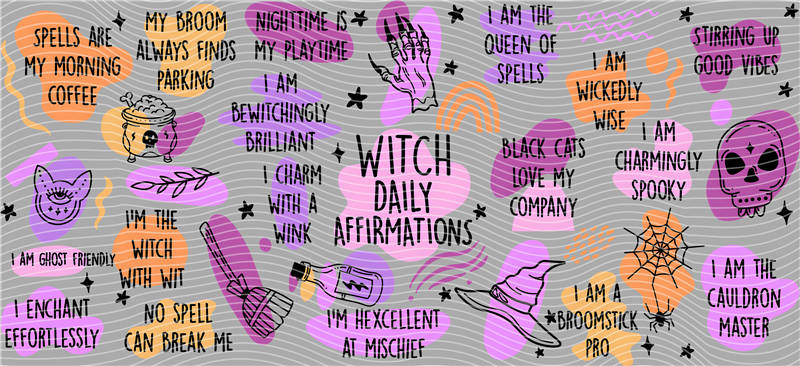 SPELLS ARE
MY MORNING
COFFEE
MY BROOM
ALWAYS FINDS
PARKING
NIGHTTIME IS
MY PLAYTIME
I AM THE
QUEEN OF
SPELLS
I AM
WICKEDLY
WISE
STIRRING UP
GOOD VIBES
I AM
BEWITCHINGLY
BRILLIANT
WITCH
DAILY
AFFIRMATIONS
BLACK CATS
LOVE MY
COMPANY
I AM
CHARMINGLY
SPOOKY
I CHARM
WITH A
WINK
I'M THE
WITCH
WITH WIT
I AM GHOST FRIENDLY
I ENCHANT
EFFORTLESSLY
NO SPELL
CAN BREAK ME
I'M HEXCELLENT
AT MISCHIEF
I AM A
BROOMSTICK
PRO
I AM THE
CAULDRON
MASTER